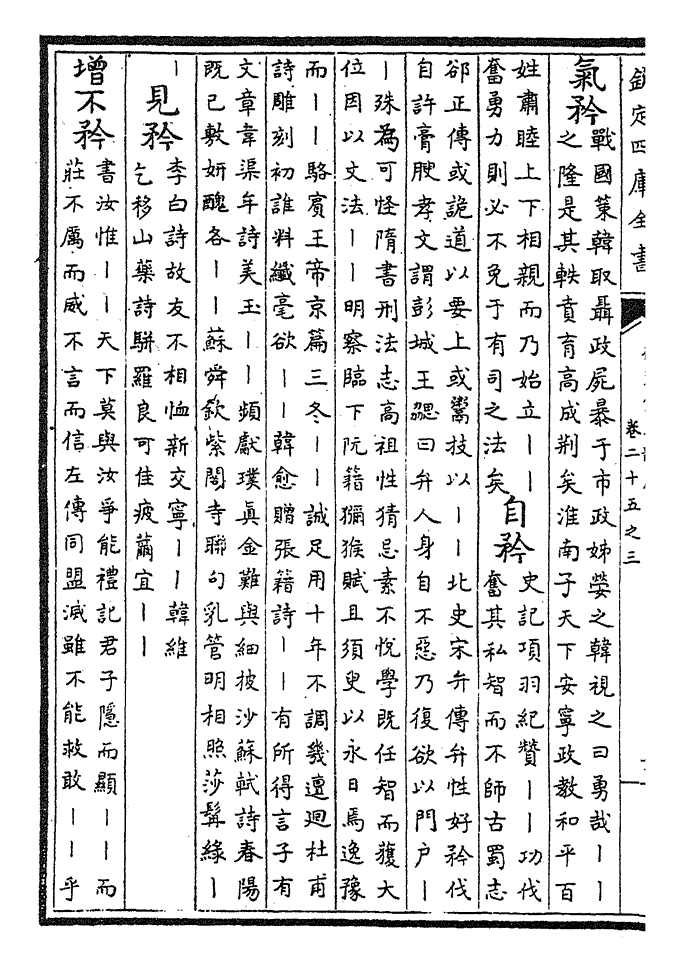 欽定四庫全書
卷二十五之三
氣矜
戰國策韓取聶政屍暴于市政姊嫈之韓視之曰勇哉丨丨
之隆是其軼賁育高成荊矣淮南子天下安寧政教和平百
姓肅睦上下相親而乃始立丨丨
奮勇力則必不免于有司之法矣
自矜
史記項羽紀贊丨丨功伐
奮其私智而不師古蜀志
郤正傳或詭道以要上或鬻技以丨丨北史宋弁傳弁性好矜伐
自許膏腴孝文謂彭城王勰曰弁人身自不惡乃復欲以門户丨
丨殊為可怪隋書刑法志高祖性猜忌素不悅學既任智而獲大
位因以文法丨丨明察臨下阮籍獼猴賦且須臾以永日焉逸豫
而丨丨駱賓王帝京篇三冬丨丨誠足用十年不調幾邅迴杜甫
詩雕刻初誰料纖毫欲丨丨韓愈贈張籍詩丨丨有所得言子有
文章韋渠牟詩美玉丨丨頻獻璞真金難與細披沙蘇軾詩春陽
既已敷妍醜各丨丨蘇舜欽紫閣寺聯句乳管明相照莎髯綠丨
丨
見矜
李白詩故友不相恤新交寧丨丨韓維
乞移山藥詩駢羅良可佳疲薾宜丨丨
增不矜
書汝惟丨丨天下莫與汝爭能禮記君子隱而顯丨丨而
莊不厲而威不言而信左傳同盟滅雖不能救敢丨丨乎